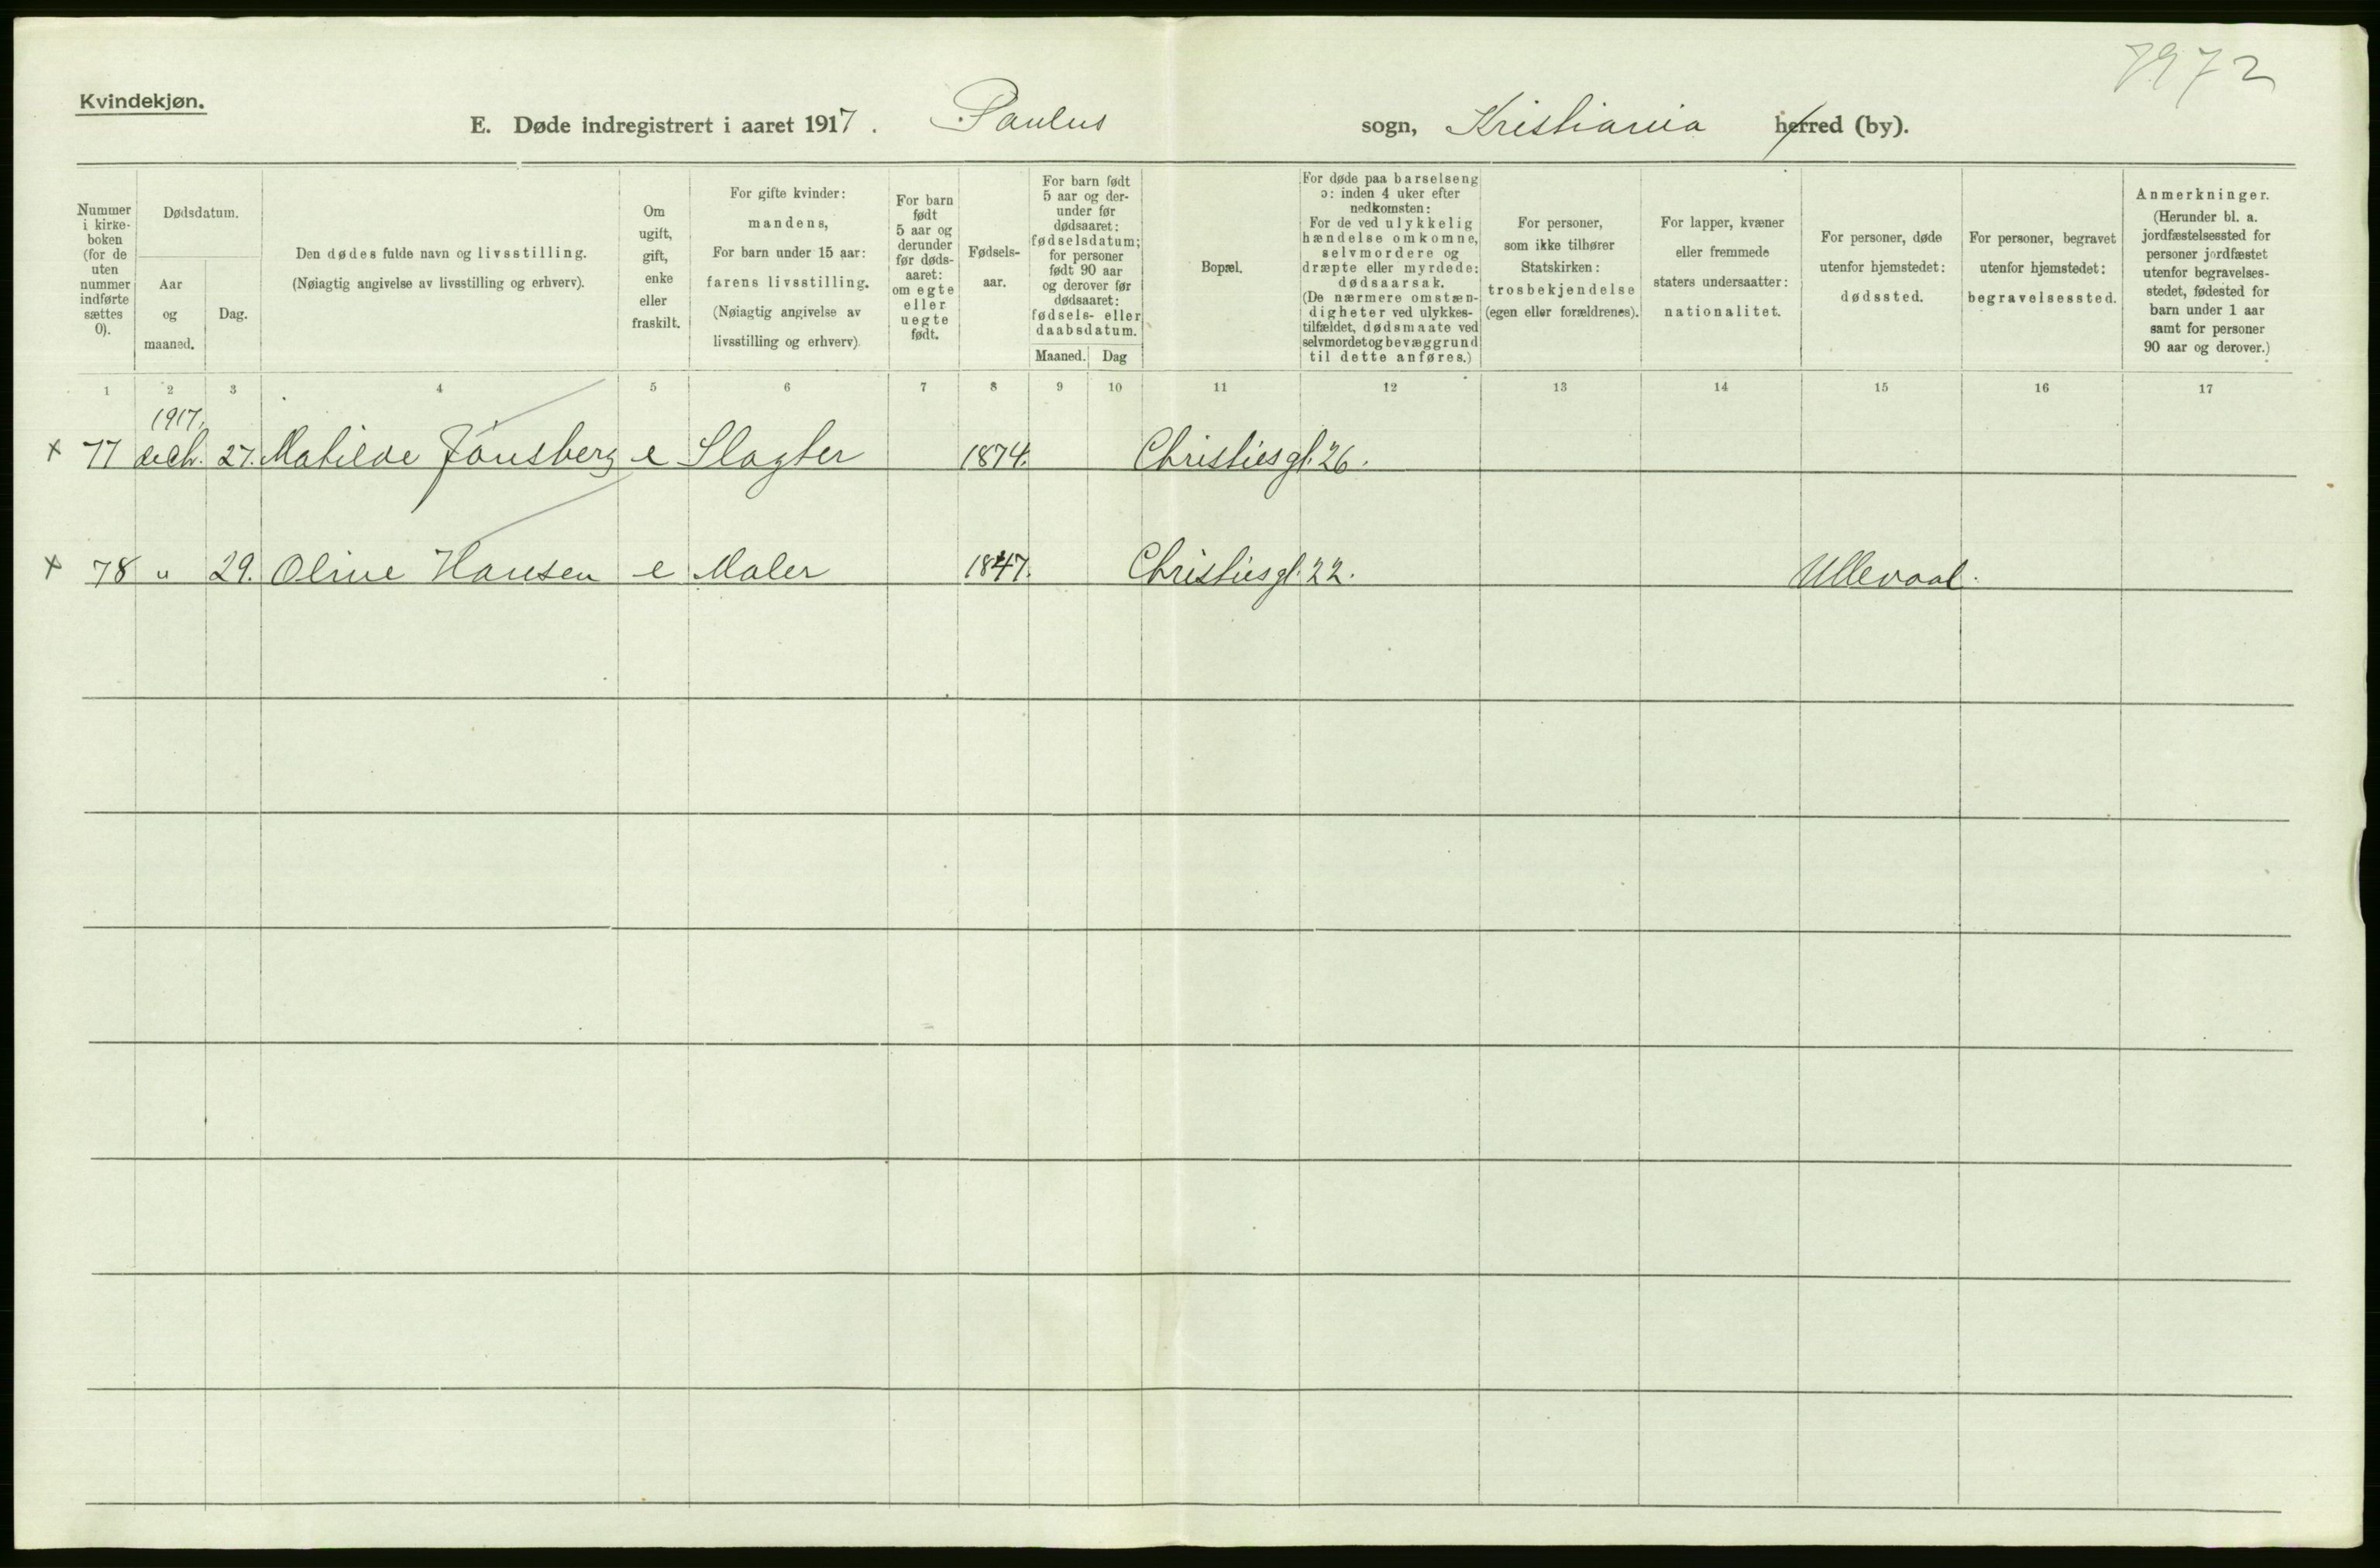 7972
Kvindekjøn.
E. Døde indregistrert i aaret 1917. Paulus sogn, Kristiania herred (by).
Nummer i kirke-
boken
(for de
uten
nummer
indførte
sættes
0).
Dødsdatum.
Aar
og
maaned.
Dag.
Den dødes fulde navn og livsstilling.
(Nøiagtig angivelse av livsstilling og erhverv).
Om
ugift,
gift,
enke
eller
fraskilt.
For gifte kvinder:
mandens,
For barn under 15 aar:
farens livsstilling.
(Nøiagtig angivelse av
livsstilling og erhverv)
For barn
født
5 aar og
derunder
før døds-
aaret:
om egte
eller
uegte
født.
Fødsels-
aar.
For barn født
5 aar og der-
under før
dødsaaret:
fødselsdatum;
for personer
født 90 aar
og derover før
dødsaaret:
fødsels- eller
daabsdatum.
Maaned. Dag
Bopæl.
For døde paa barselseng
ɔ: inden 4 uker efter
nedkomsten:
For de ved ulykkelig
hændelse omkomne,
selvmordere og
dræpte eller myrdede:
dødsaarsak.
(De nærmere omstæn-
digheter ved ulykkes-
tilfældet, dødsmaate ved
selvmordet og bevæggrund
til dette anføres.)
For personer,
som ikke tilhører
Statskirken:
trosbekjendelse
(egen eller forældrenes).
For lapper, kvæner
eller fremmede
staters undersaatter:
nationalitet.
For personer, døde
utenfor hjemstedet:
dødssted.
For personer, begravet
utenfor hjemstedet:
begravelsessted.
Anmerkninger.
(Herunder bl. a.
jordfæstelsessted for
personer jordfæstet
utenfor begravelses-
stedet, fødested for
barn under 1 aar
samt for personer
90 aar og derover.)
1 2 3 4 5 6 7 8 9 10 11 12 13 14 15 16 17
1917.
x 77 dech. 27. Matilde Jönsberg e Slagter 1874. Christiesgt. 26.
x 78 " 29. Oline Hansen e Maler 1847. Christiesgt. 22. Ullevaal.